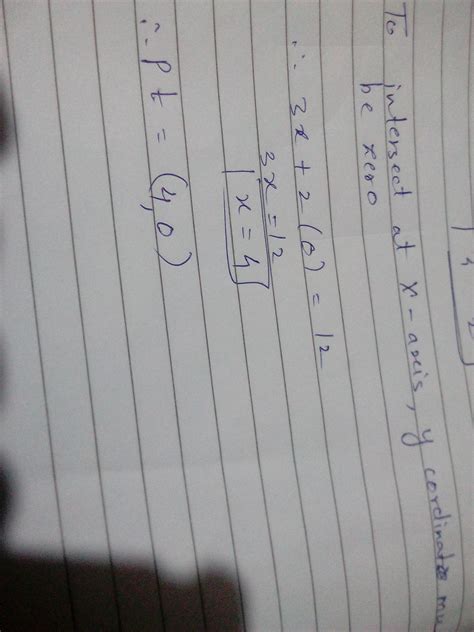 To intersect at x-axis, y coordinate mu
be zero
∴ 3x + 2(0) = 12
3x = 12
x = 4
∴ Pt = (4,0)